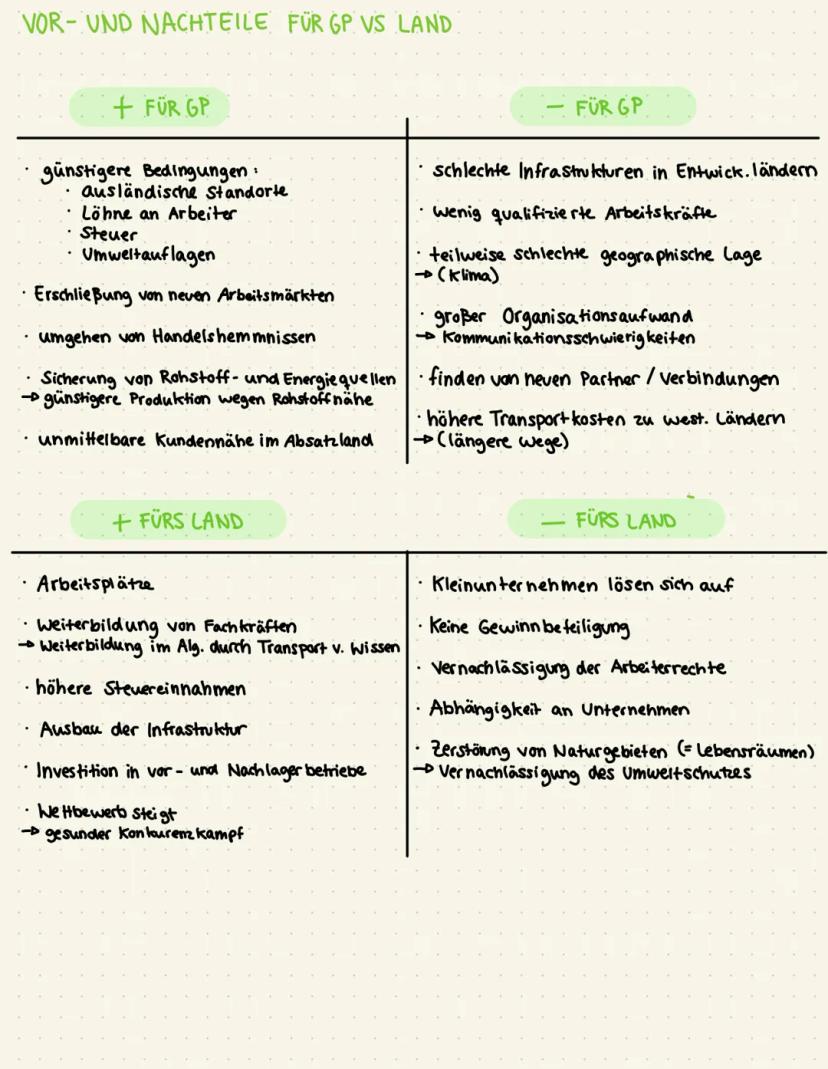 VOR- UND NACHTEILE FÜR GP VS LAND
+ FÜR GP
· günstigere Bedingungen:
· ausländische Standorte
· Löhne an Arbeiter
· Steuer
· Umweltauflagen
· Erschließung von neuen Arbeitsmärkten
· umgehen von Handelshemmnissen
· Sicherung von Rohstoff- und Energiequellen
→ günstigere Produktion wegen Rohstoffnähe
· unmittelbare Kundennähe im Absatzland
— FÜR GP
· schlechte Infrastrukturen in Entwick.ländern
· wenig qualifizierte Arbeitskräfte
· teilweise schlechte geographische Lage
→ (Klima)
· großer Organisationsaufwand
→ Kommunikationsschwierigkeiten
· finden von neuen Partner / Verbindungen
· höhere Transportkosten zu west. Ländern
→ (längere Wege)
+ FÜRS LAND
· Arbeitsplätze
· Weiterbildung von Fachkräften
→ Weiterbildung im Alg. durch Transport v. Wissen
· höhere Steuereinnahmen
· Ausbau der Infrastruktur
· Investition in vor- und Nachlagerbetriebe
· Wettbewerb steigt
→ gesunder Konkurenzkampf
— FÜRS LAND
· Kleinunternehmen lösen sich auf
· Keine Gewinnbeteiligung
· Vernachlässigung der Arbeiterrechte
· Abhängigkeit an Unternehmen
· Zerstörung von Naturgebieten (= Lebensräumen)
→ Vernachlässigung des Umweltschutzes